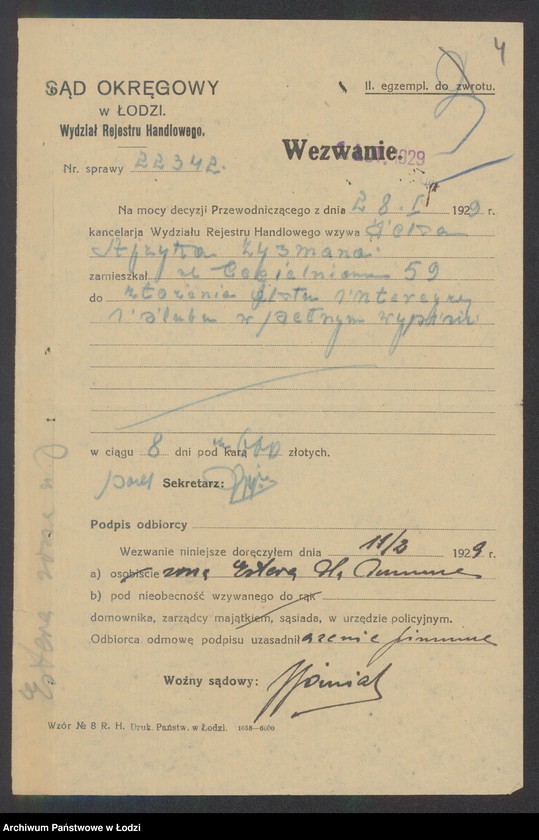 4
SĄD OKRĘGOWY
w ŁODZI.
Wydział Rejestru Handlowego.
II. egzempl. do zwrotu.
Wezwanie.
1929
Nr. sprawy 22342.
Na mocy decyzji Przewodniczącego z dnia 28.I 1929 r.
kancelaria Wydziału Rejestru Handlowego wzywa
Zyzmana
zamieszkał ul Cegielniana 59
do złożenia aktu intercyzy
i ślubu w pełnym wypisie
w ciągu 8 dni pod karą złotych.
Sekretarz:
Podpis odbiorcy
Wezwanie niniejsze doręczyłem dnia 11/2 1929 r.
a) osobiście żona Estera
b) pod nieobecność wzywanego do rąk
domownika, zarządcy majątkiem, sąsiada, w urzędzie policyjnym.
Odbiorca odmowę podpisu uzasadnił
Woźny sądowy:
Wzór № 8 R. H. Druk. Państw. w Łodzi. 1058—6000
Estera żona
Archiwum Państwowe w Łodzi